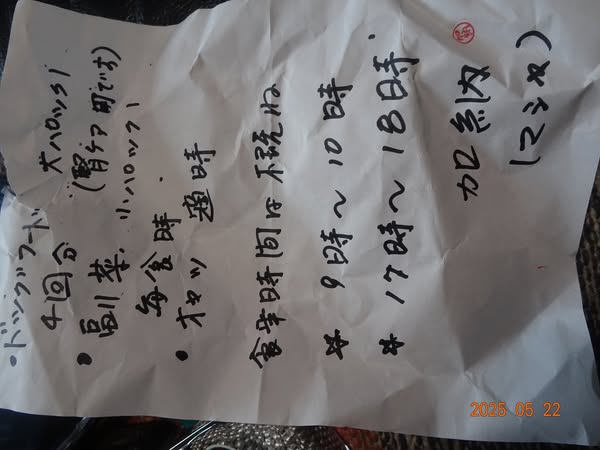 ・ドッグフード 大パック1
4回分 (腎ケア用です)
・副菜, 小パック1
毎食時
・オヤツ 適時
食事時間は
* 9時〜10時
* 17時〜18時
加納
2025 05 22